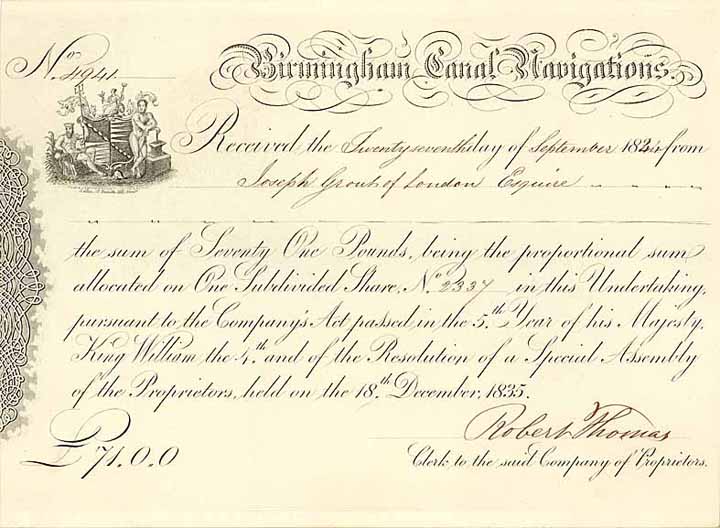 No. 4941.
Birmingham Canal Navigations.
Received the Twenty seventh day of September 1844 from
Joseph Grout of London Esquire
the sum of Seventy One Pounds, being the proportional sum
allocated on One Subdivided Share, No. 2337 in this Undertaking,
pursuant to the Company's Act passed in the 5.th Year of his Majesty,
King William the 4.th and of the Resolution of a Special Assembly
of the Proprietors, held on the 18.th December, 1835.
Robert Thomas
£71.0.0
Clerk to the said Company of Proprietors.